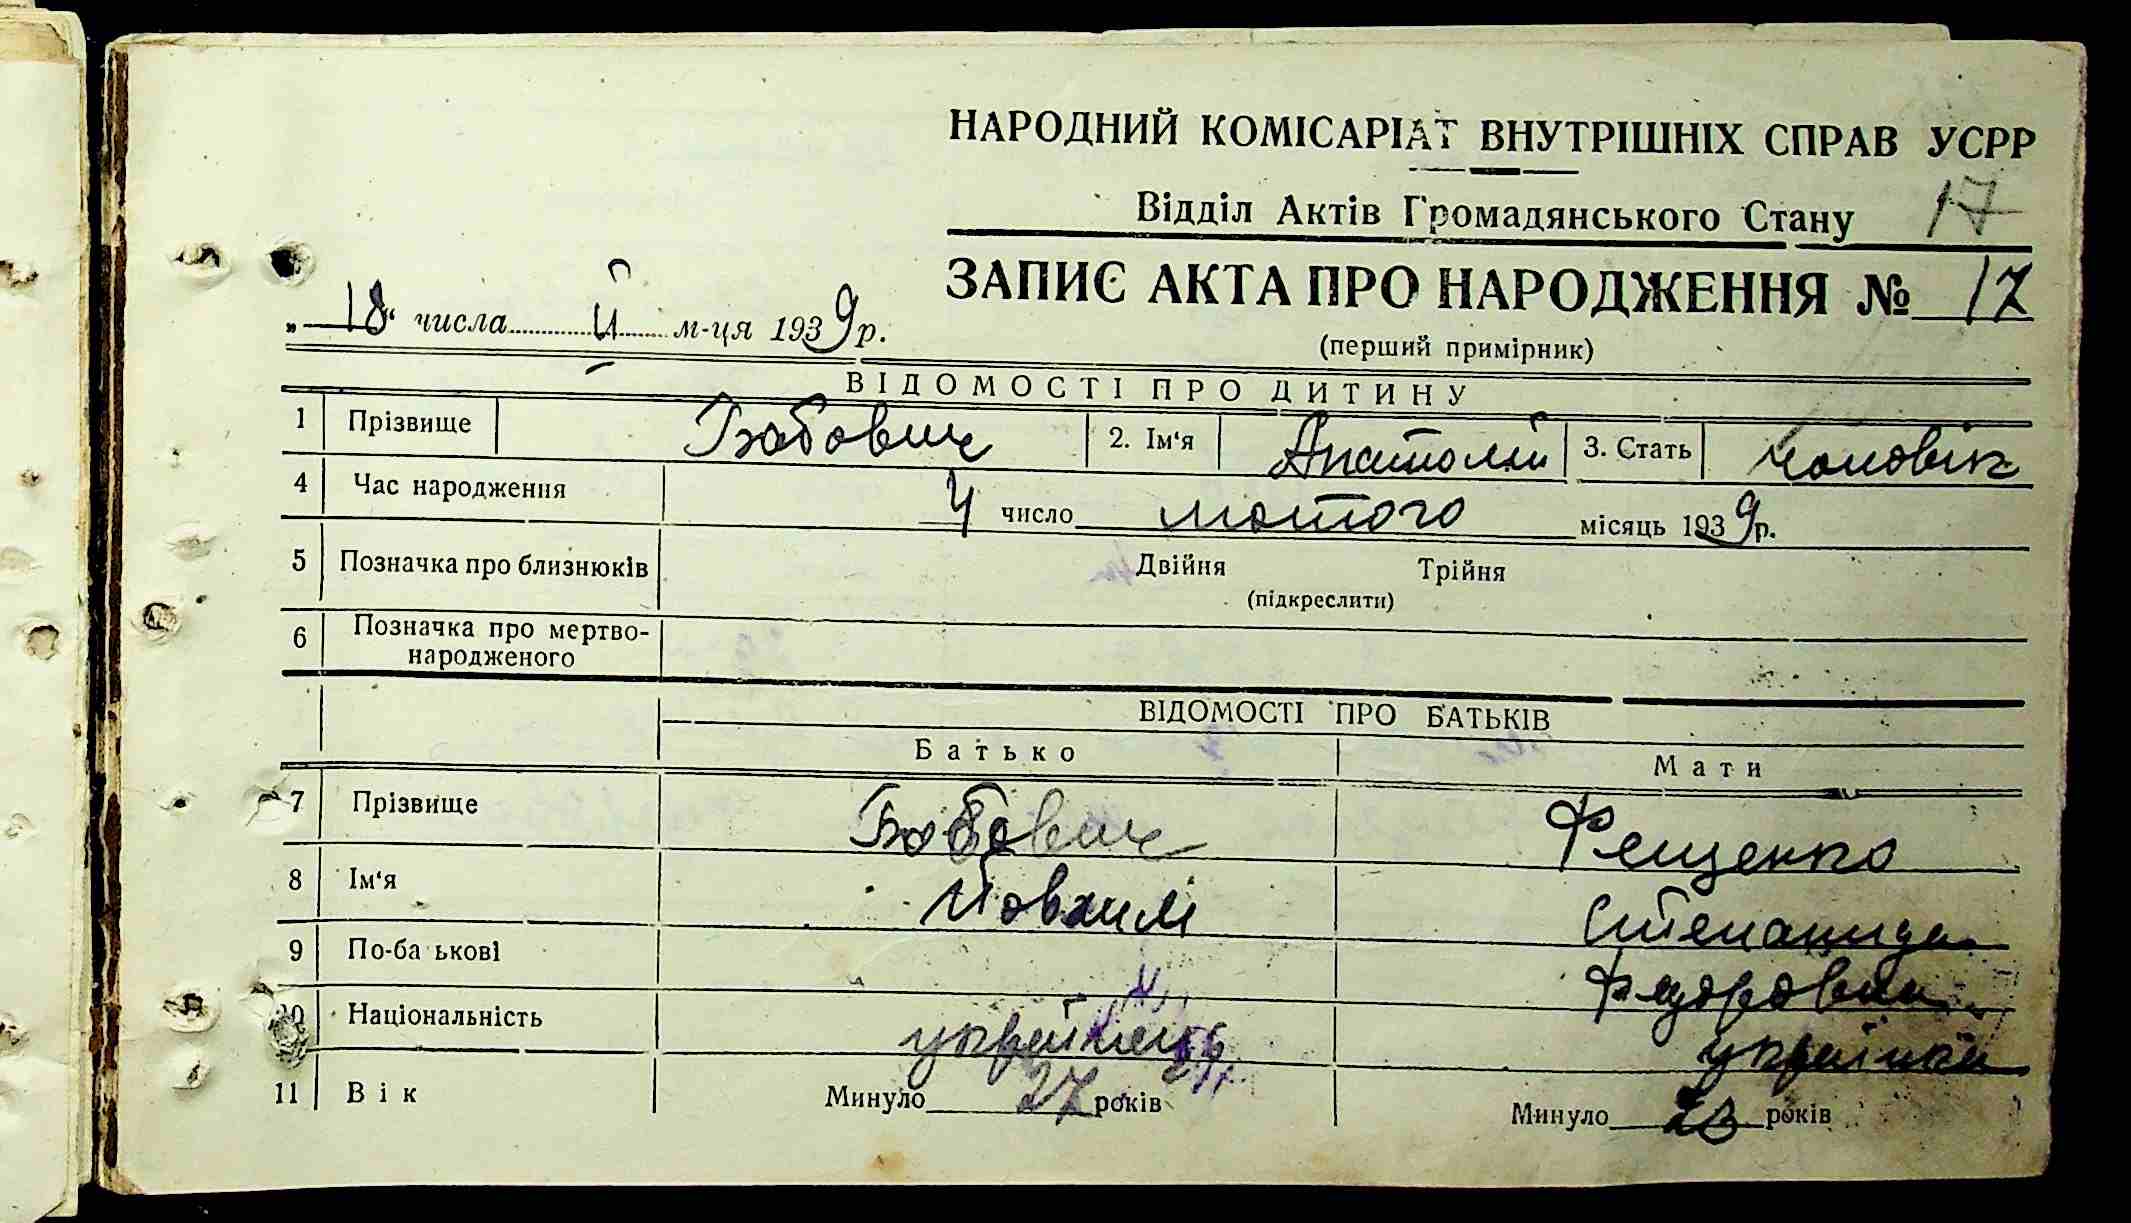 НАРОДНИЙ КОМІСАРІАТ ВНУТРІШНІХ СПРАВ УСРР
Відділ Актів Громадянського Стану 17
ЗАПИС АКТА ПРО НАРОДЖЕННЯ № 17
„18“ числа II м-ця 1939 р.
(перший примірник)
ВІДОМОСТІ ПРО ДИТИНУ
1 Прізвище Бабович 2. Ім'я Анатолій 3. Стать Чоловік
4 Час народження 4 число лютого місяць 1939 р.
5 Позначка про близнюків Двійня Трійня
(підкреслити)
6 Позначка про мертво-
народженого
ВІДОМОСТІ ПРО БАТЬКІВ
Батько Мати
7 Прізвище Бабович Фещенко
8 Ім'я Йовхим Степанида
9 По-ба ькові Федоровна
10 Національність українець українка
11 Вік Минуло 27 років Минуло років